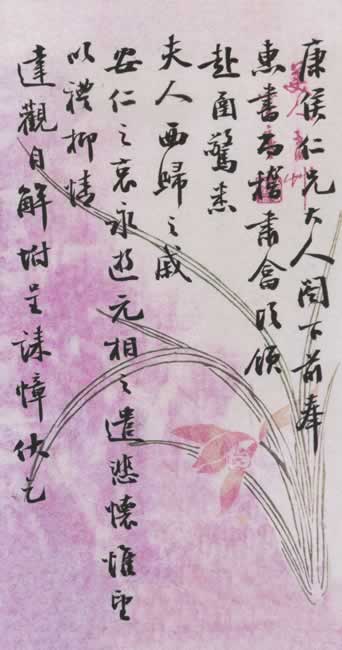 康侯仁兄大人閣下前奉
惠書尚稽肅畣頃領
赴函驚悉
夫人西歸之戚
安仁之哀永逝元相之遣悲懷惟望
以禮抑情
達觀自解坿呈誄幛伏乞